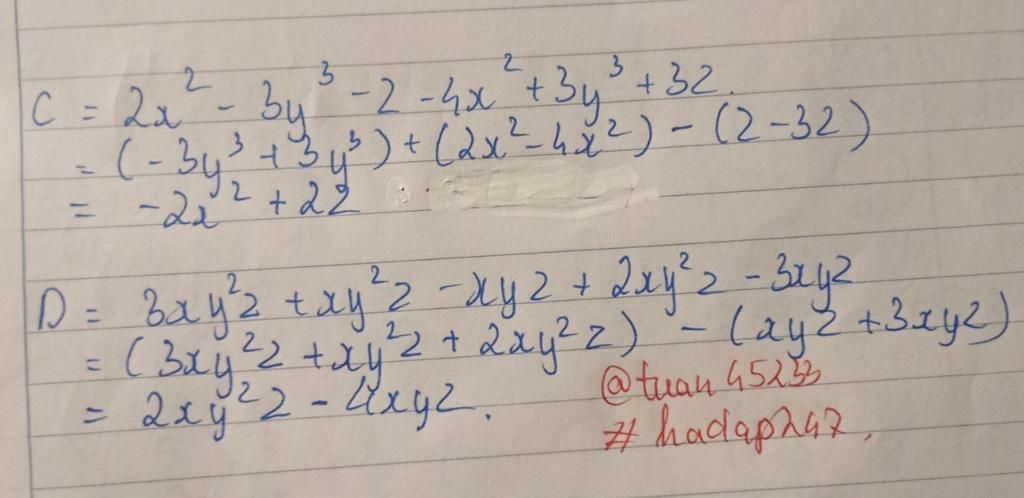 C = 2x² - 3y³ - z - 4x² + 3y³ + 3z.
= (-3y³ + 3y³) + (2x² - 4x²) - (z - 3z)
= -2x² + 2z
D = 3xy²z + xy²z - xyz + 2xy²z - 3xyz
= (3xy²z + xy²z + 2xy²z) - (xyz + 3xyz)
= 2xy²z - 4xyz.
@tuan45233
# hadap247.